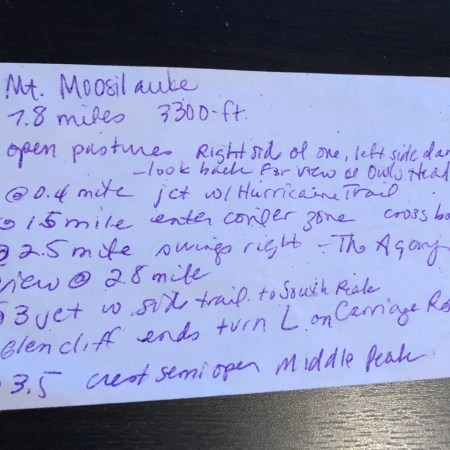 Mt. Moosilauke
7.8 miles 3300-ft.
open pastures Right sid of one, left side
-look back for view of Owls Head
@ 0.4 mile jct w/ Hurricane Trail
1.5 mile enter confer zone cross
@ 2.5 mile swings right - The Agony
view @ 2.8 mile
3 jct w side trail to South Peak
Glencliff ends turn L on Carriage
3.5 crest semi open Middle Peak.